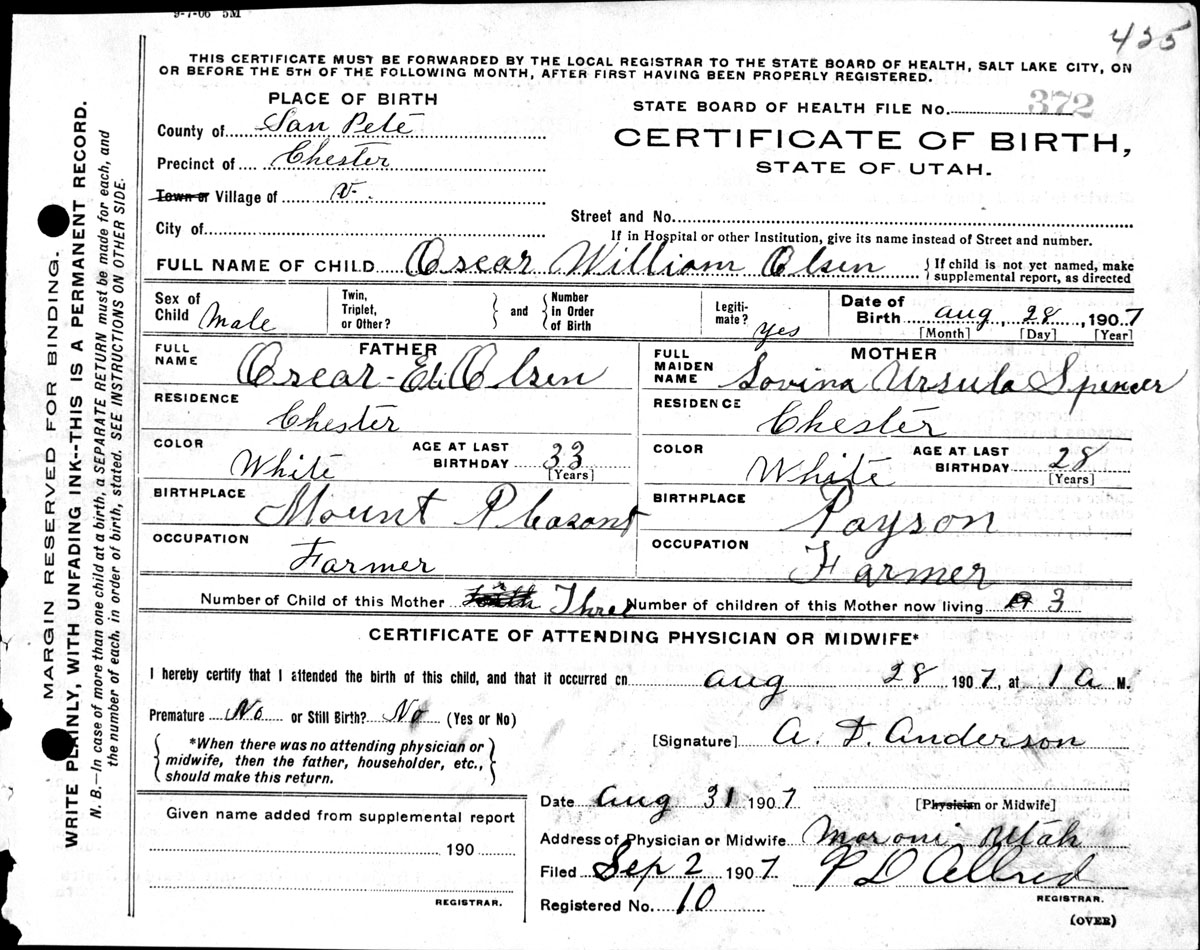 9-7-06 5M
425
THIS CERTIFICATE MUST BE FORWARDED BY THE LOCAL REGISTRAR TO THE STATE BOARD OF HEALTH, SALT LAKE CITY, ON
OR BEFORE THE 5TH OF THE FOLLOWING MONTH, AFTER FIRST HAVING BEEN PROPERLY REGISTERED.
PLACE OF BIRTH
County of San Pete
Precinct of Chester
Town or Village of V.
City of
STATE BOARD OF HEALTH FILE No. 372
CERTIFICATE OF BIRTH,
STATE OF UTAH.
Street and No.
If in Hospital or other Institution, give its name instead of Street and number.
FULL NAME OF CHILD Oscar William Olsen { If child is not yet named, make
supplemental report, as directed
Sex of Child Male
Twin, Triplet, or Other? } and { Number in Order of Birth
Legitimate? yes
Date of Birth aug, 28, 1907
[Month] [Day] [Year]
FATHER
FULL NAME Oscar-Eli Olsen
RESIDENCE
Chester
COLOR White AGE AT LAST BIRTHDAY 33
[Years]
BIRTHPLACE
Mount Pleasant
OCCUPATION
Farmer
MOTHER
FULL MAIDEN NAME Lovina Ursula Spencer
RESIDENCE
Chester
COLOR White AGE AT LAST BIRTHDAY 28
[Years]
BIRTHPLACE
Payson
OCCUPATION
Farmer
Number of Child of this Mother Three Number of children of this Mother now living 3
CERTIFICATE OF ATTENDING PHYSICIAN OR MIDWIFE*
I hereby certify that I attended the birth of this child, and that it occurred on aug 28 1907, at 1 a M.
Premature No or Still Birth? No (Yes or No)
{ *When there was no attending physician or
midwife, then the father, householder, etc.,
should make this return. }
[Signature] A. D. Anderson
[Physician or Midwife]
Date aug 31 1907
Address of Physician or Midwife Moroni Utah
Filed Sep 2 1907 P D Allred
REGISTRAR.
Registered No. 10
(OVER)
Given name added from supplemental report
190
REGISTRAR.
MARGIN RESERVED FOR BINDING.
WRITE PLAINLY, WITH UNFADING INK--THIS IS A PERMANENT RECORD.
N. B.—In case of more than one child at a birth, a SEPARATE RETURN must be made for each, and
the number of each, in order of birth, stated. SEE INSTRUCTIONS ON OTHER SIDE.